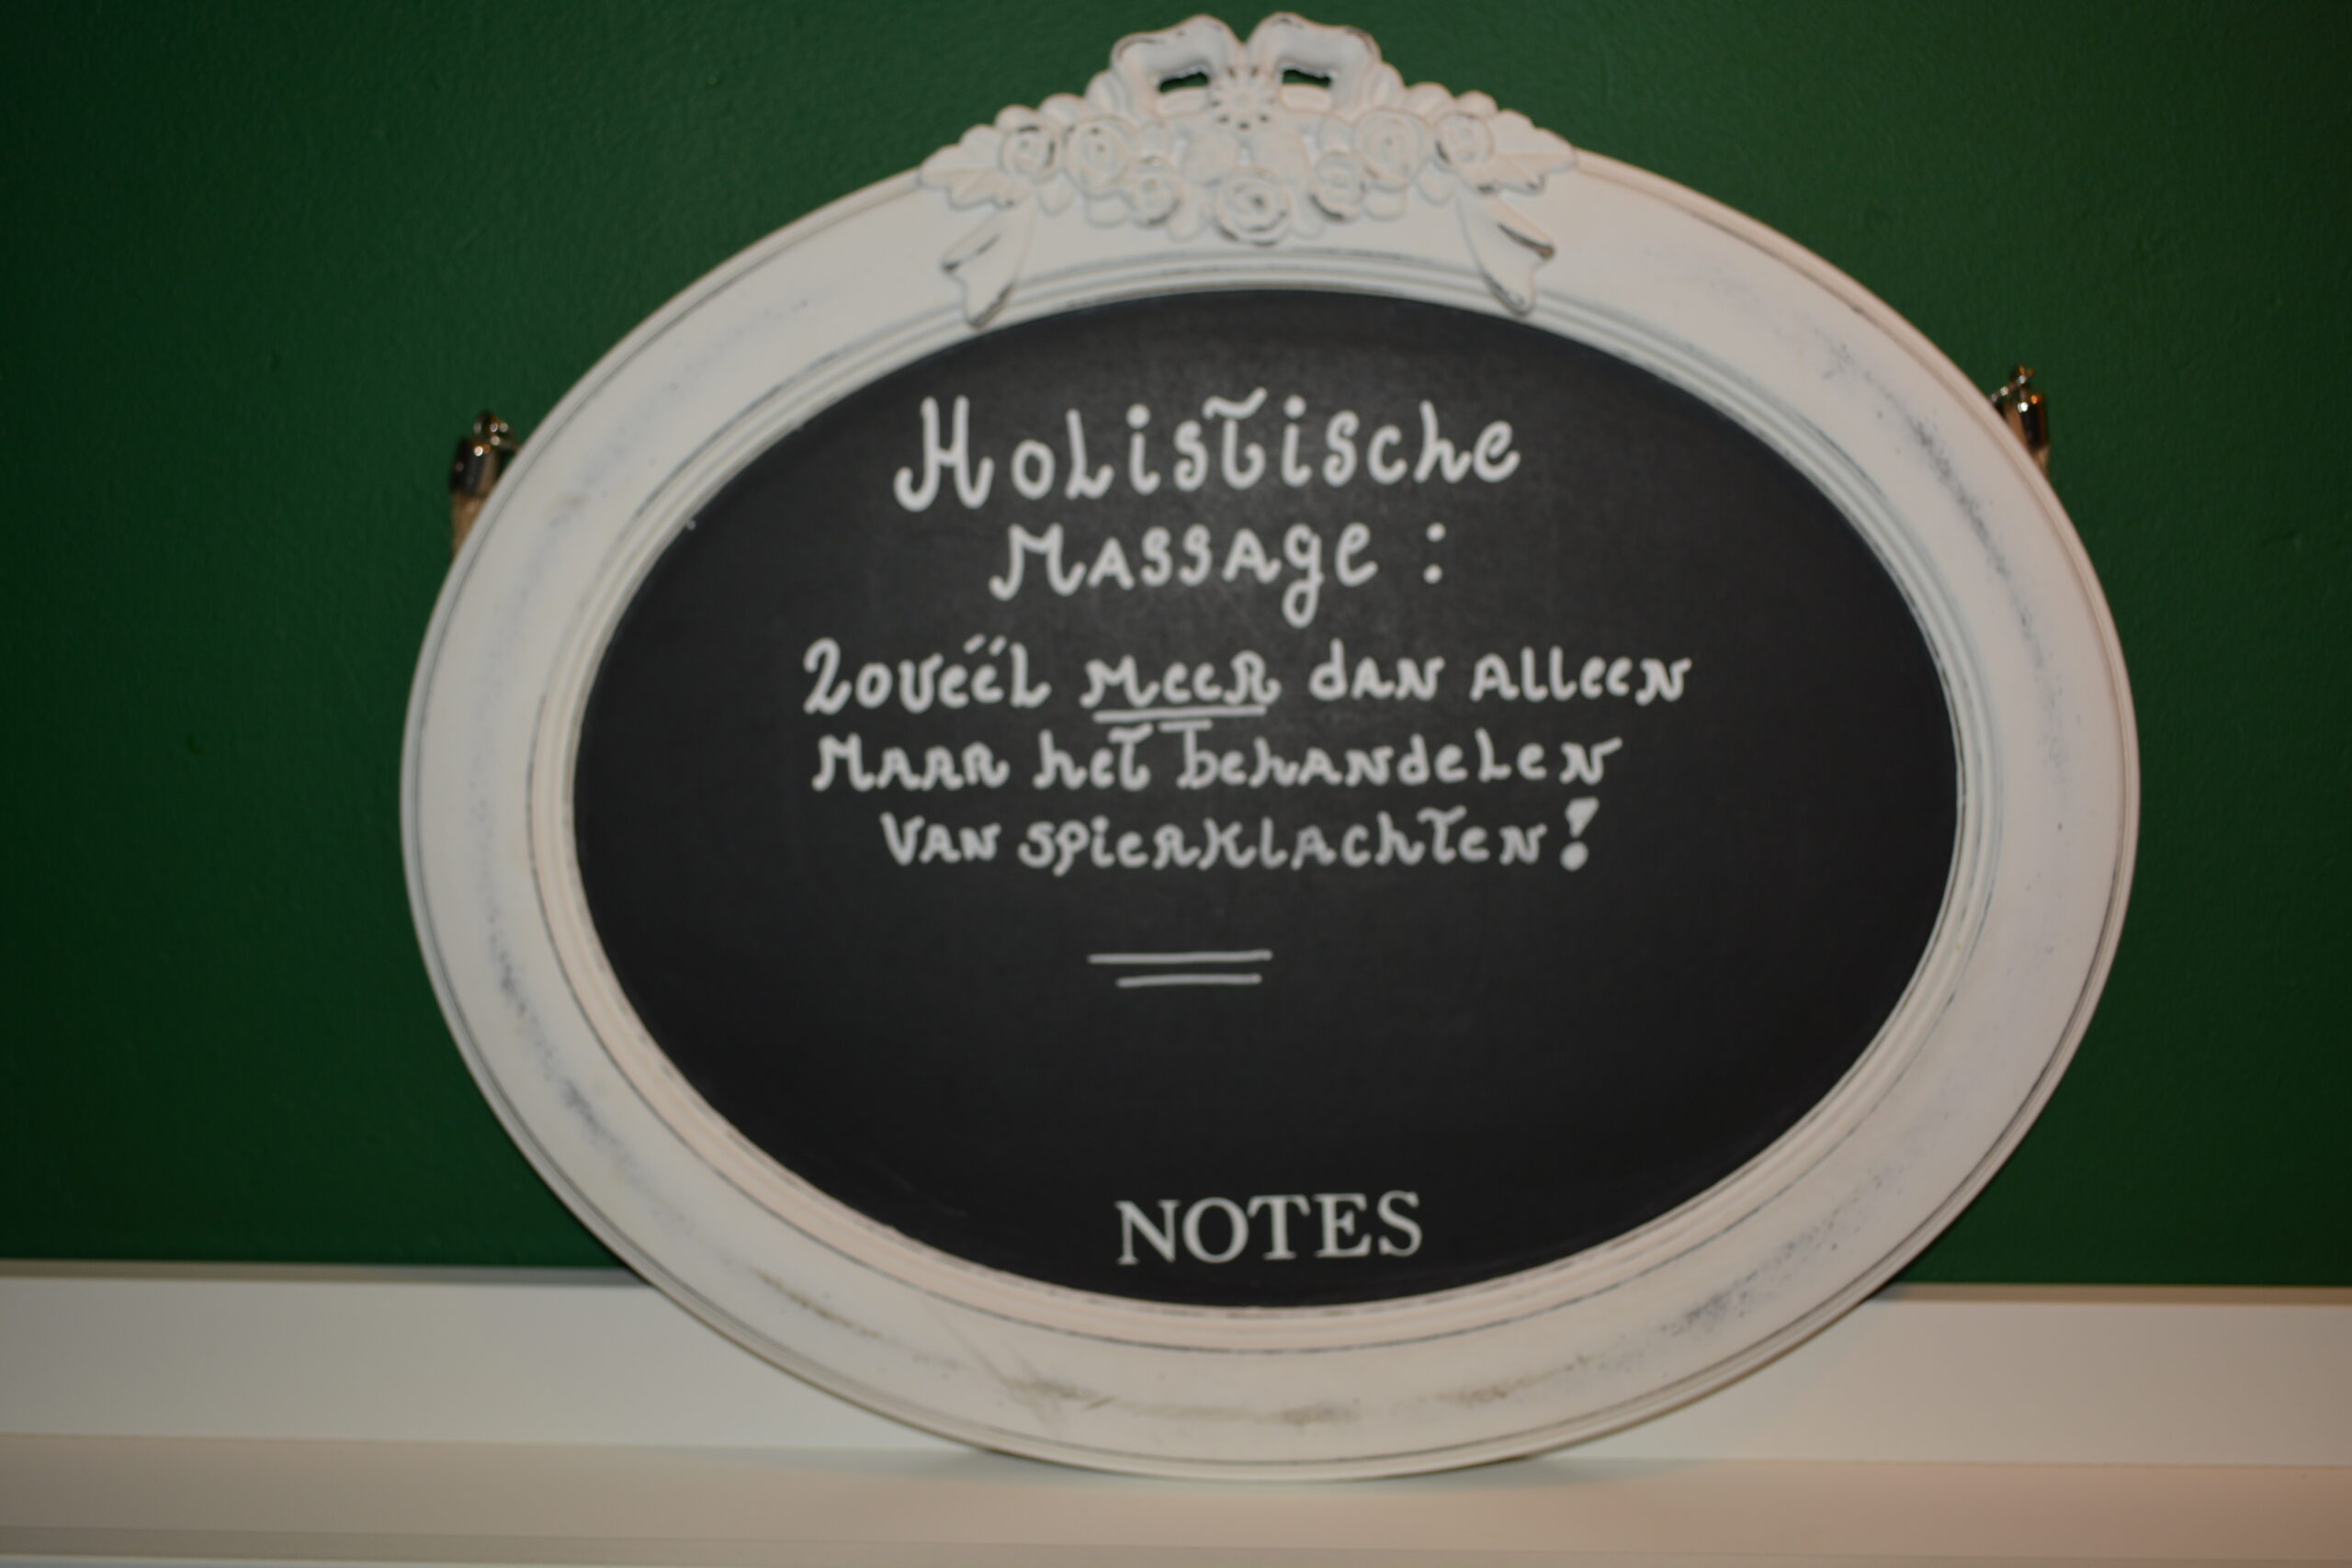 Holistische
Massage :
Zovéél meer dan alleen
maar het behandelen
van spierklachten!
NOTES